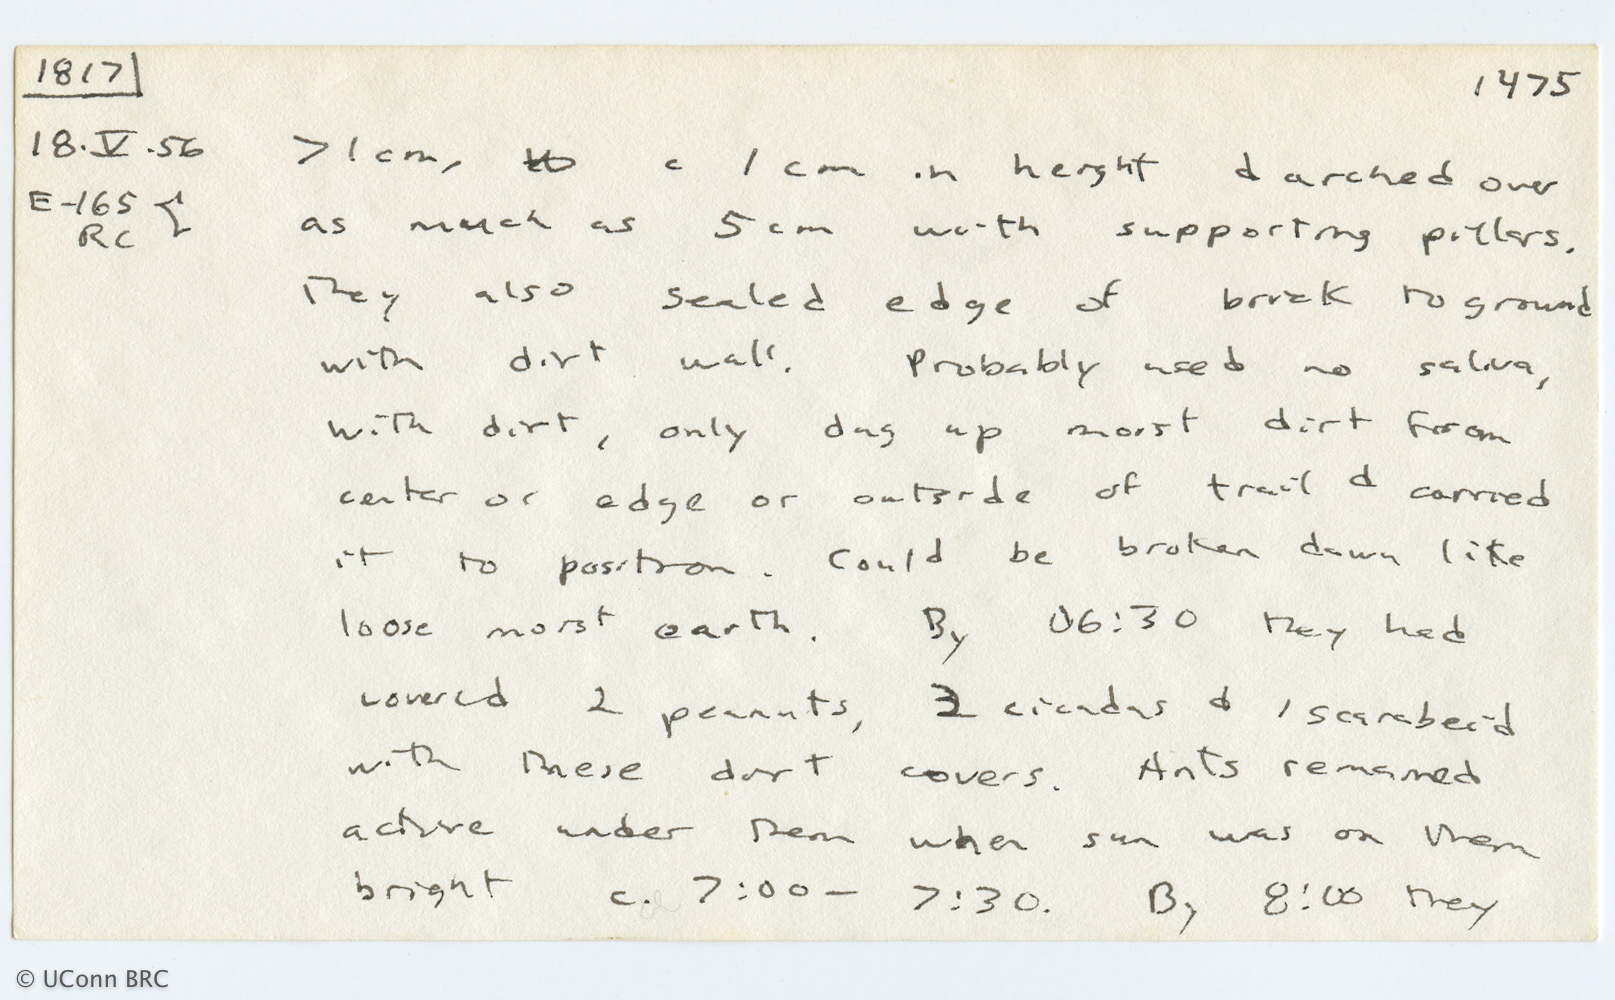 1817
1475
18.V.56 >1 cm, c 1 cm in height & arched over
E-165 { as much as 5 cm with supporting pillars.
RC
They also sealed edge of brick to ground
with dirt wall. Probably used no saliva,
with dirt, only dug up moist dirt from
center or edge or outside of trail & carried
it to position. Could be broken down like
loose moist earth. By 06:30 they had
covered 2 peanuts, 2 cicadas & 1 scarabeid
with these dirt covers. Ants remained
active under them when sun was on them
bright c. 7:00 – 7:30. By 8:00 they
© UConn BRC